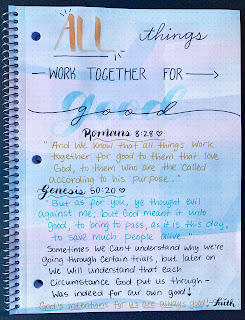 ALL things
WORK TOGETHER FOR
Good
Romans 8:28 ♡
"And we know that all things work
together for good to them that love
God, to them who are the called
according to his purpose."
Genesis 50:20 ♡
"But as for you, ye thought evil
against me; but God meant it unto
good, to bring to pass, as it is this day,
to save much people alive."
Sometimes we can't understand why we're
going through certain trials, but later on
we will understand that each
circumstance God put us through -
was indeed for our own good!
God's intentions for us are always good! -Faith